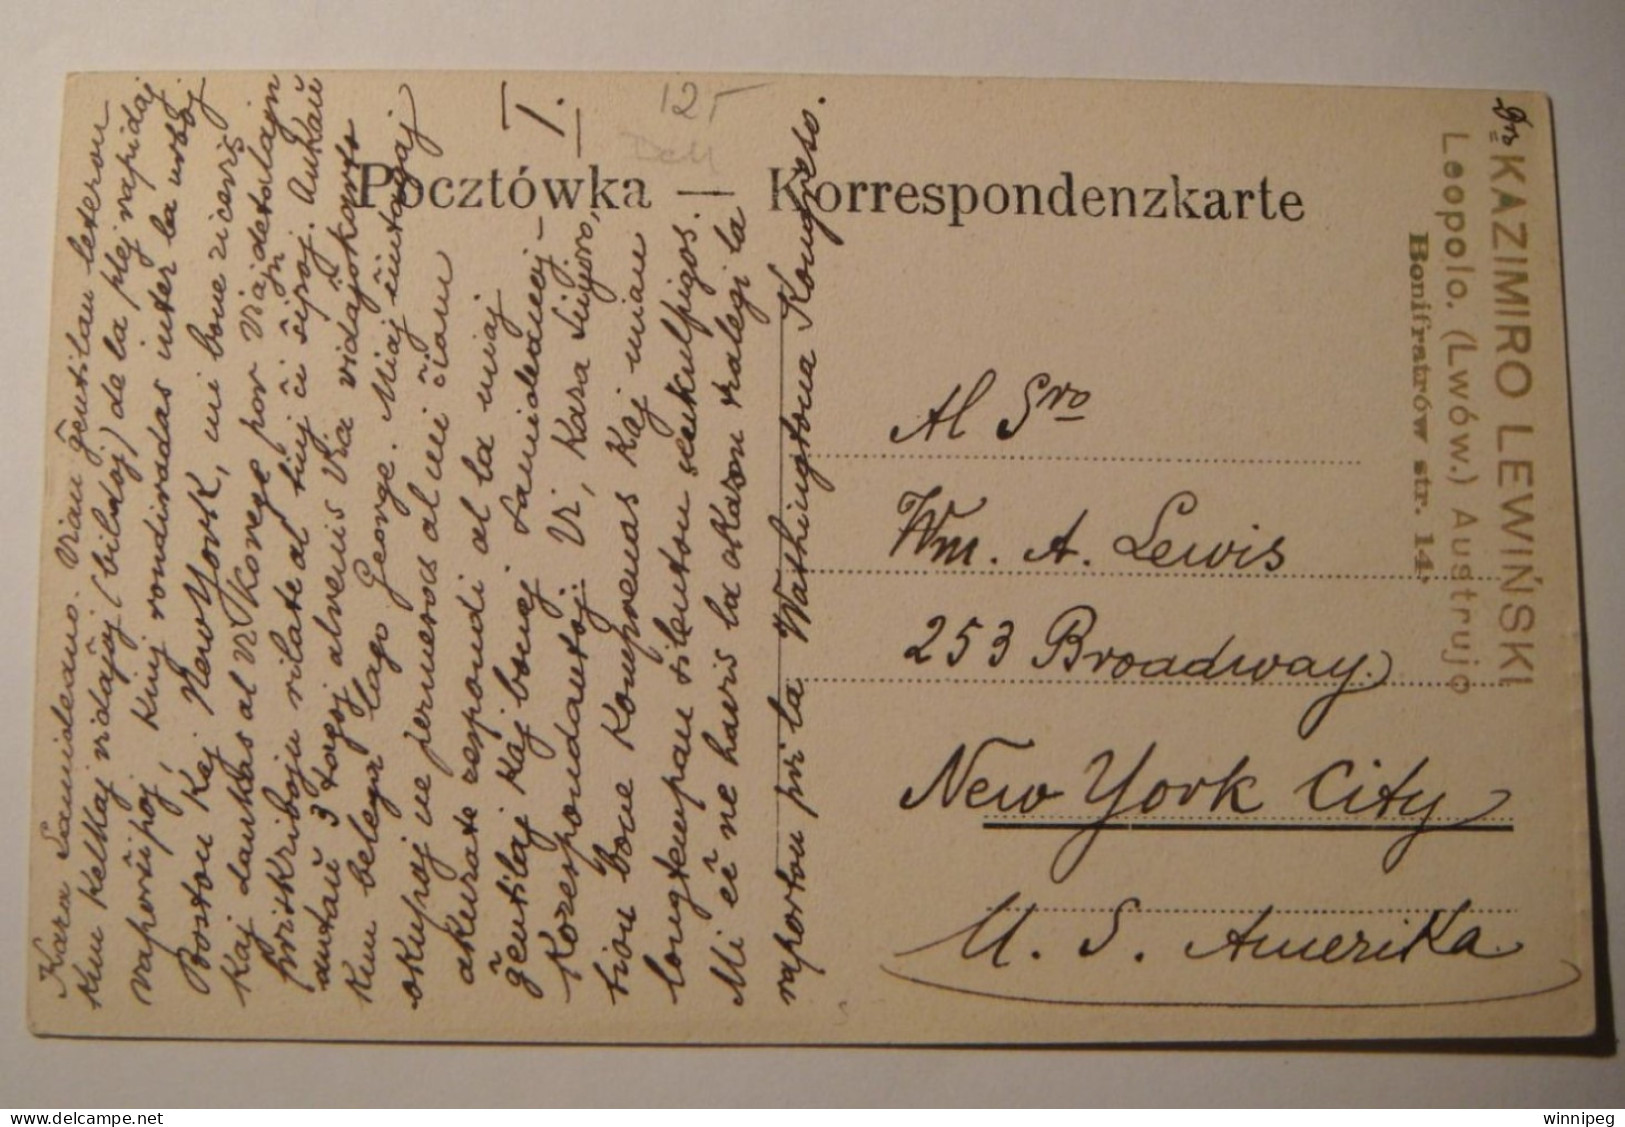 I.
12
Pocztówka — Korrespondenzkarte
Dro KAZIMIRO LEWIŃSKI
Leopolo. (Lwów.) Austrujo
Bonifratrów str. 14.
Kara Samideano. Vian ĝentilan leteron
kun kelkaj vidaĵoj (bildoj) de la plej rapidaj
vaporŝipoj, kiuj rondiradas inter la urboj
Boston kaj New York, mi bone ricevis
kaj dankas al Vi kore pro Viaj detalajn
priskriboju rilate al tiuj ĉi ŝipoj. Ankaŭ
antaŭ 3 tagoj alvenis Via vidaĵokarto
kun belega lago George. Miaj ĉiutagaj
okupoj ne permesas al mi ĉiam
akurate respondi al la miaj
ĝentilaj kaj bonaj Samideanoj-
Korespondantoj. Vi, Kara Sinjoro,
bone komprenas kaj mian
longtempan silenton senkulpigos.
Mi eĉ ne havis la okazon tralegi la
raporton pri la Washingtona Kongreso.
Al Sro
Wm. A. Lewis
253 Broadway
New York City
U. S. Amerika
winnipeg